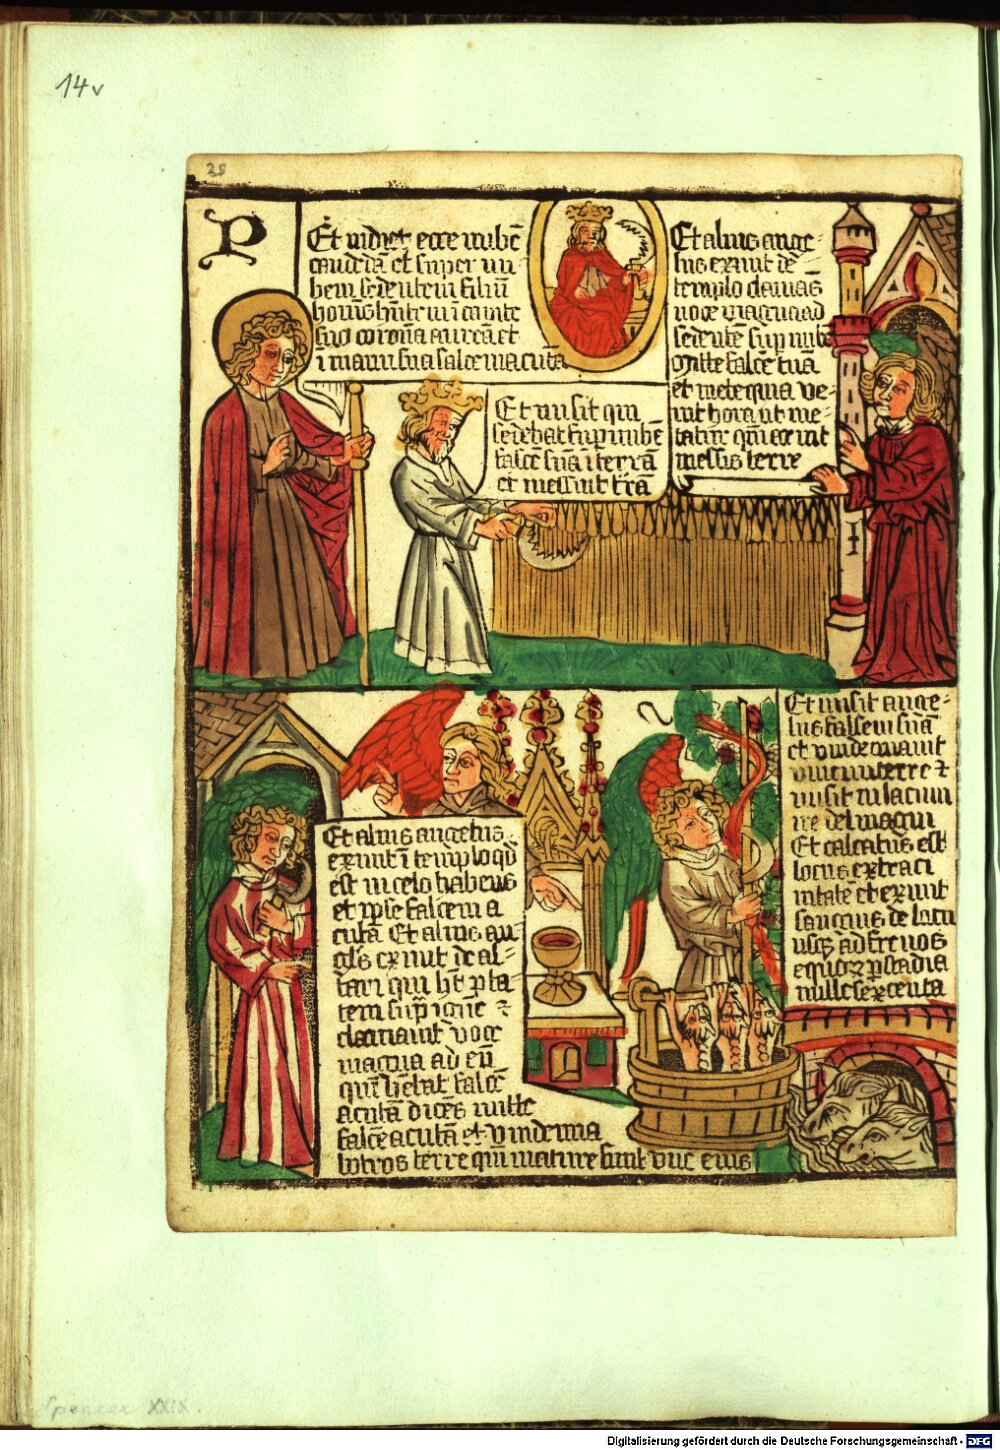 14v
28
P
Et vidi et ecce nubē
candidā et super nu-
bem sedentem filiū
hoīnis hn̄te in capite
suo coronā aureā et
ī manu sua falcē macutā
Et alius ange-
lus exivit de
templo clamās
voce magna ad
sedentē sup nubē
mitte falcē tuā
et mete quia ve-
nit hora ut me-
tatur qm̄
messis terre
Et misit qui
sedebat sup nubē
falcē suā ī terrā
et messuit t'rā
Et alius angelus
exivit ī templo qd̄
est in celo habens
et ip̄e falcem a
cutā Et alius an-
gl's exivit de al-
tari qui ht̄ p̄ta
tem sup̄ ignē ⁊
clamavit voce
magna ad eū
qui h̄ebat falcē
acutā dicēs mitte
falcē acutā et vindemia
botros terre qm̄ mature sunt vue eius
Et misit ange-
lus falsem suā
et vindemiavit
vineam terre ⁊
misit in lacum
ire dei magni
Et calcatus est
locus extra ci
vitatē et exivit
sanguis de lacu
usq; ad frenos
equoꝝ p stadia
mille sexcenta
Spencer XXIX.
Digitalisierung gefördert durch die Deutsche Forschungsgemeinschaft - DFG